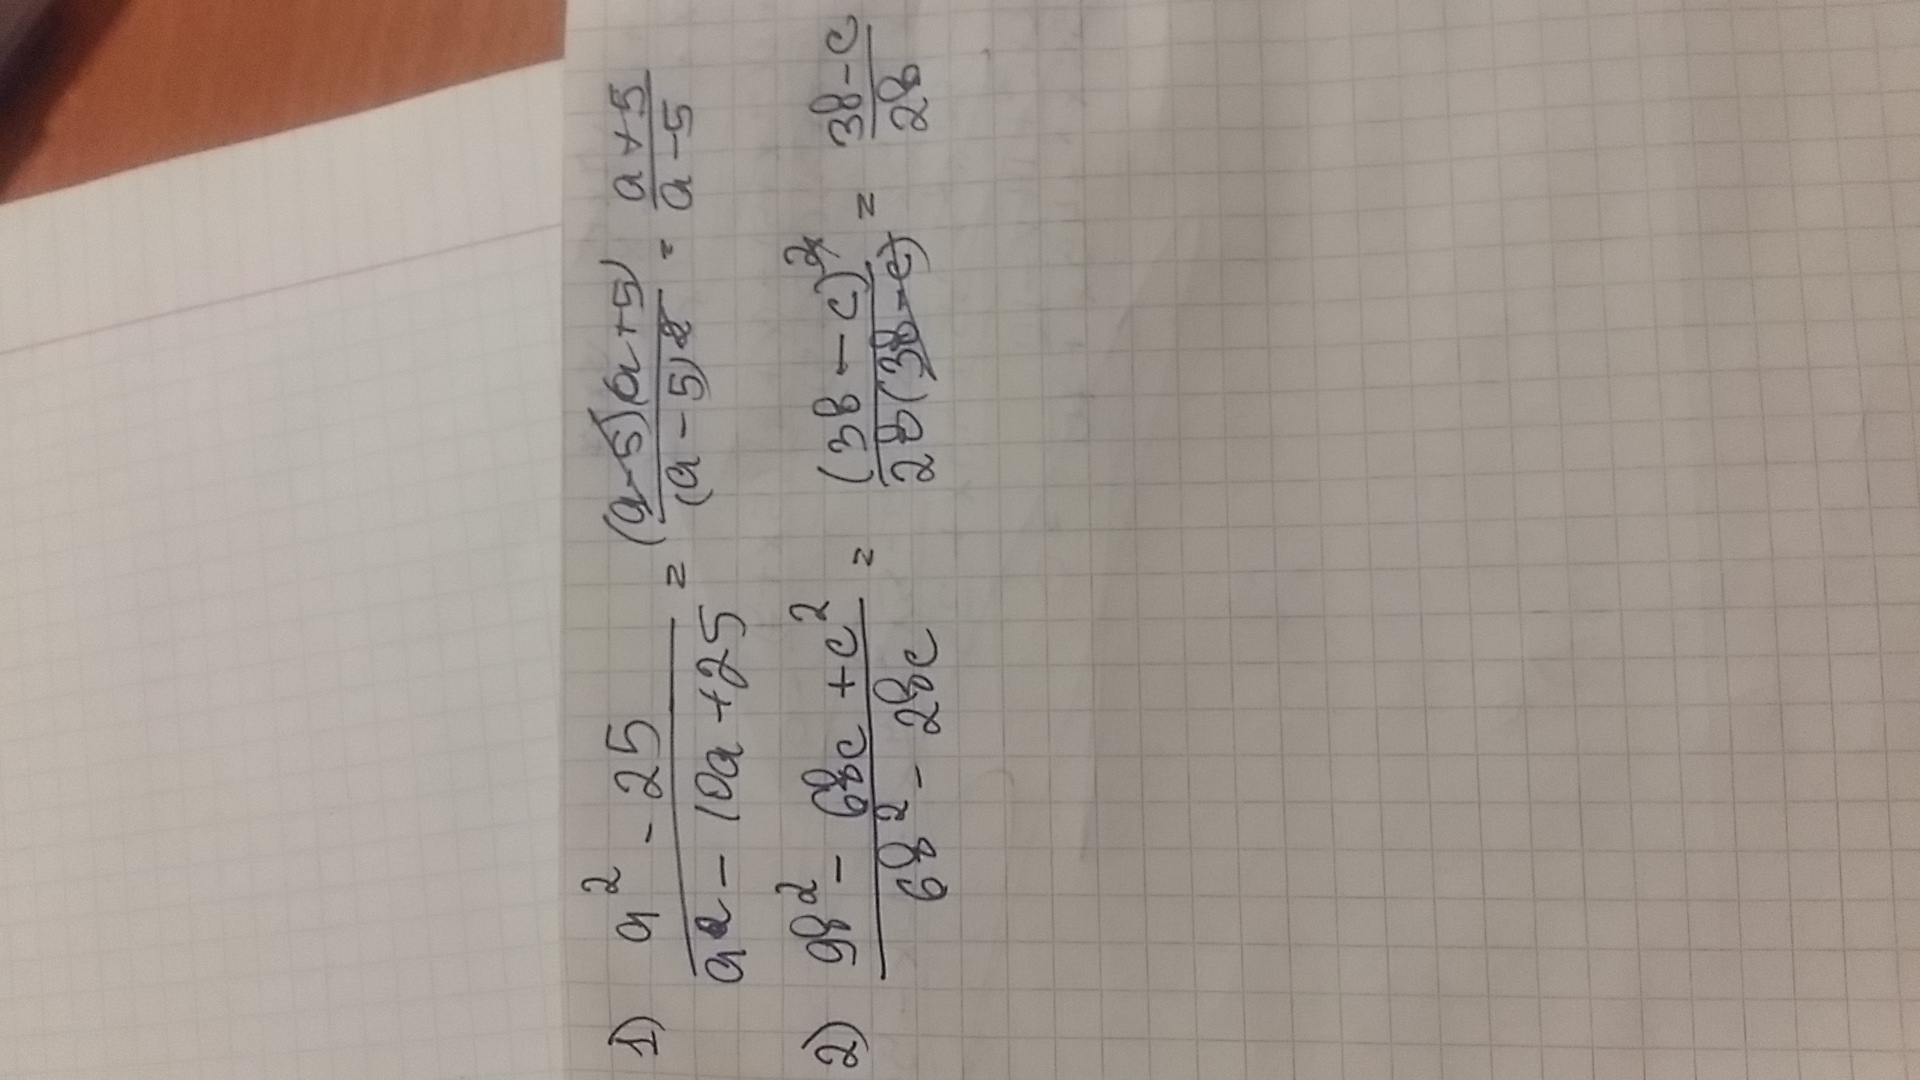 1) a² - 25 / a² - 10a + 25 = (a-5)(a+5) / (a-5)² = a+5 / a-5
2) 9в² - 6вc + c² / 6в² - 2вc = (3в - c)² / 2в(3в-c) = 3в-c / 2в